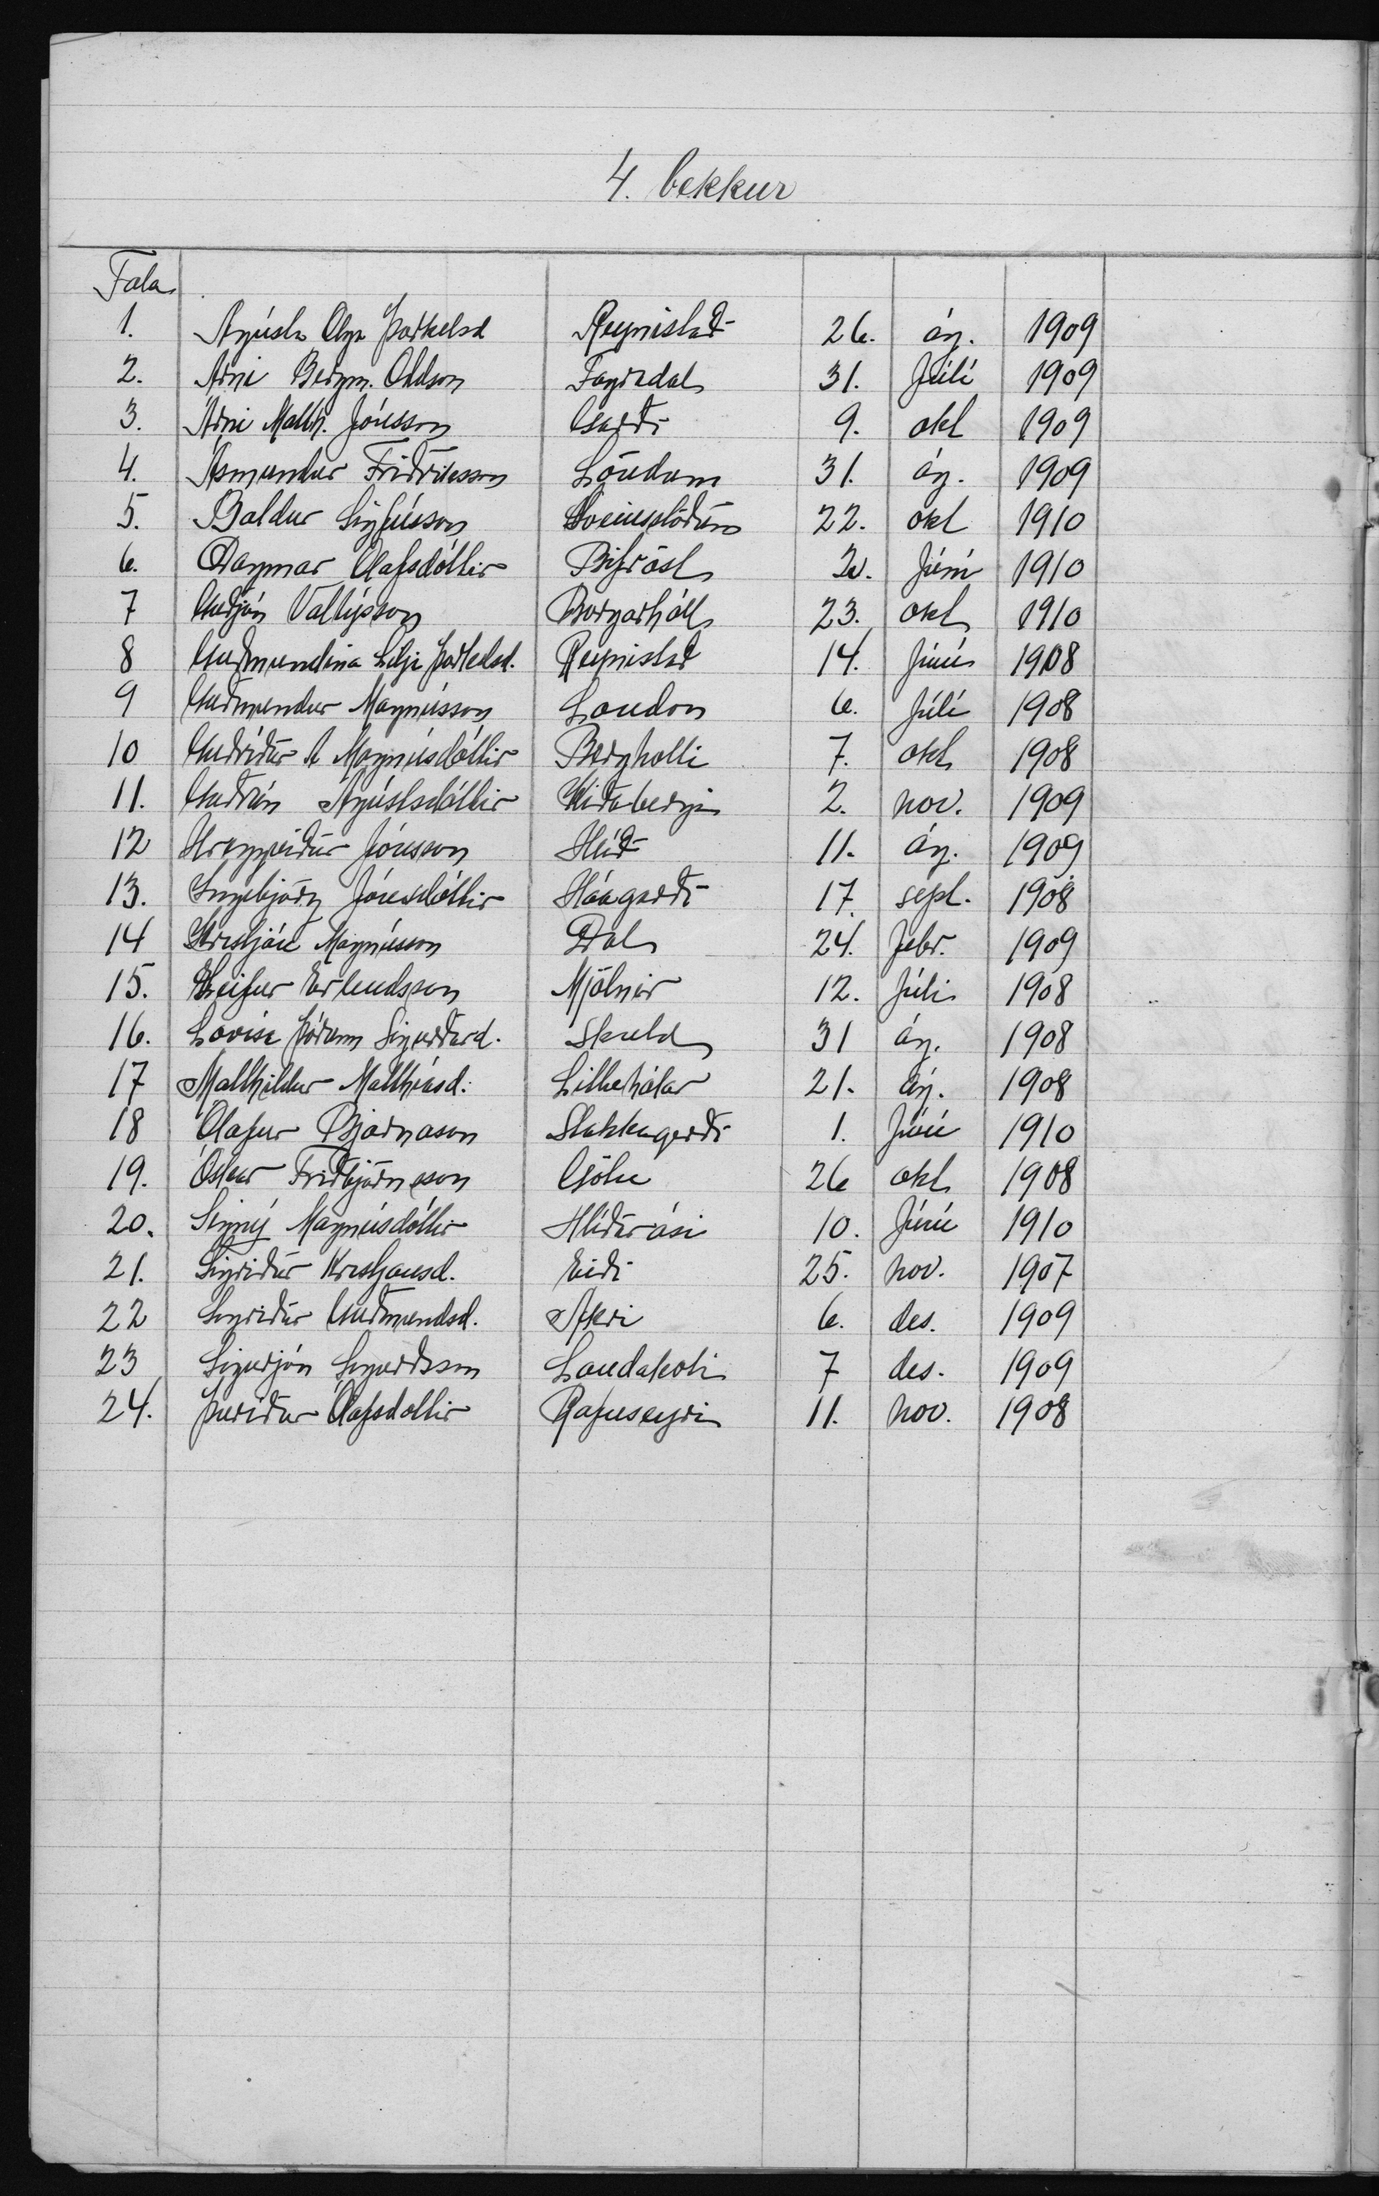 4. bekkur
Tala
1. Ágústa Olga Þorkelsd Reynistað 26. ág. 1909
2. Árni Bergm. Oddson Fagradal 31. Júlí 1909
3. Árni Matth. Jónsson Garði 9. okt 1909
4. Ásmundur Friðriksson Löndum 31. ág. 1909
5. Baldur Sigfússon 22. okt 1910
6. Dagmar Ólafsdóttir Bifröst Júní 1910
7 Guðjón Valtýsson Borgarhóll 23. okt 1910
8 Guðmundína Lilja Þorkelsd. Reynistað 14. Júní 1908
9 Guðmundur Magnússon London 6. Júlí 1908
10 Guðríður A Magnúsdóttir Bergholti 7. okt 1908
11. Guðrún Ágústsdóttir Kiðabergi 2. nov. 1909
12 Hreggviður Jónsson Hlíð 11. ág. 1909
13. Ingibjörg Jónsdóttir Háagarði 17. sept. 1908
14 Kristján Magnússon Dal 24. febr. 1909
15. Leifur Erlendsson Mjölnir 12. Júlí 1908
16. Lovísa Þórunn Sigurðard. Skuld 31 ág. 1908
17 Matthildur Matthíasd. Litluhólar 21. ág. 1908
18 Ólafur Bjarnason Stakkagerði 1. Júní 1910
19. Óskar Friðbjörnsson Götu 26 okt 1908
20. Signý Magnúsdóttir Hlíðarási 10. Júní 1910
21. Sigríður Kristjansd. Eiði 25. nov. 1907
22 Sigríður Guðmundsd. Akri 6. des. 1909
23 Sigurjón Sigurðsson Landakoti 7 des. 1909
24. Þuríður Ólafsdottir Rafnseyri 11. nov. 1908